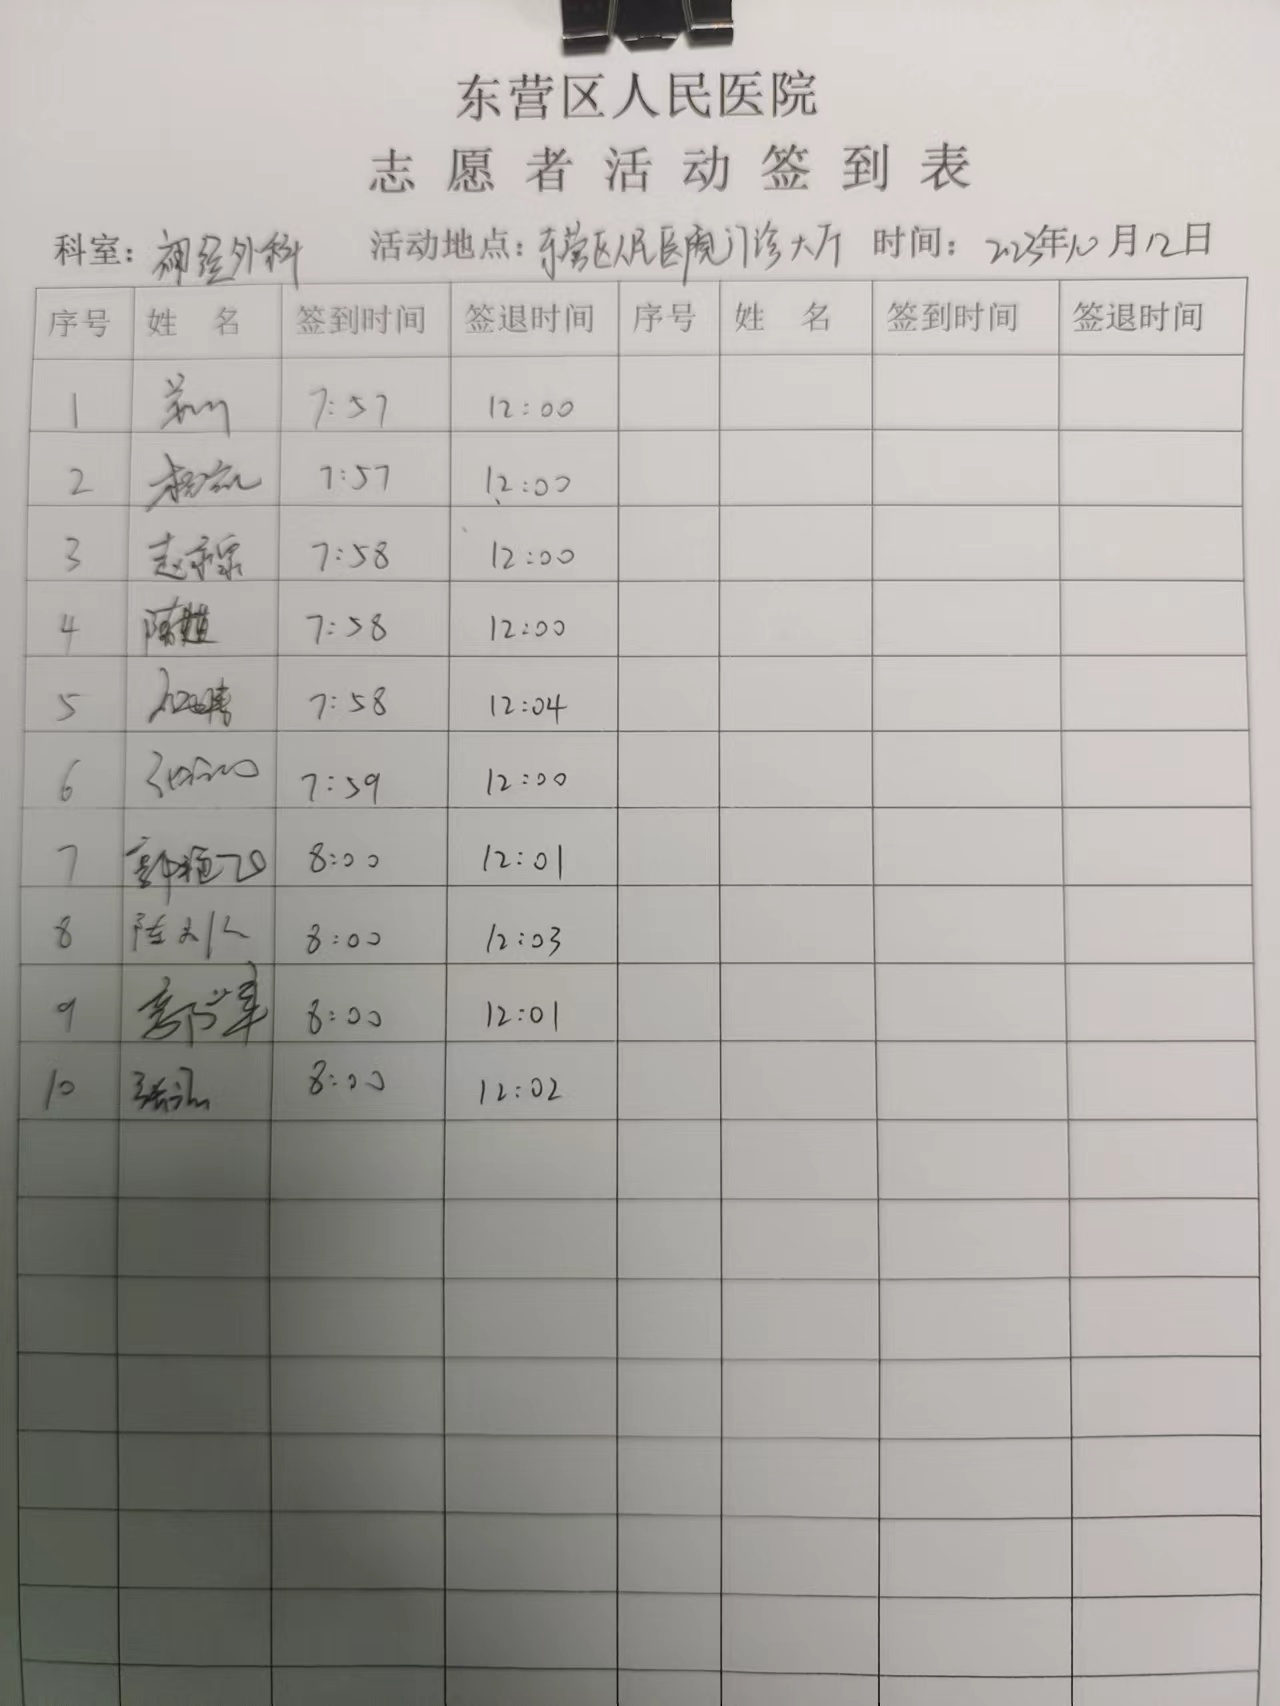 东营区人民医院
志愿者活动签到表
科室：神经外科 活动地点：东营区人民医院门诊大厅 时间：2023年10月12日
序号 姓名 签到时间 签退时间 序号 姓名 签到时间 签退时间
1 7:57 12:00
2 7:57 12:00
3 7:58 12:00
4 陈超 7:58 12:00
5 7:58 12:04
6 7:59 12:00
7 8:00 12:01
8 8:00 12:03
9 8:00 12:01
10 8:00 12:02